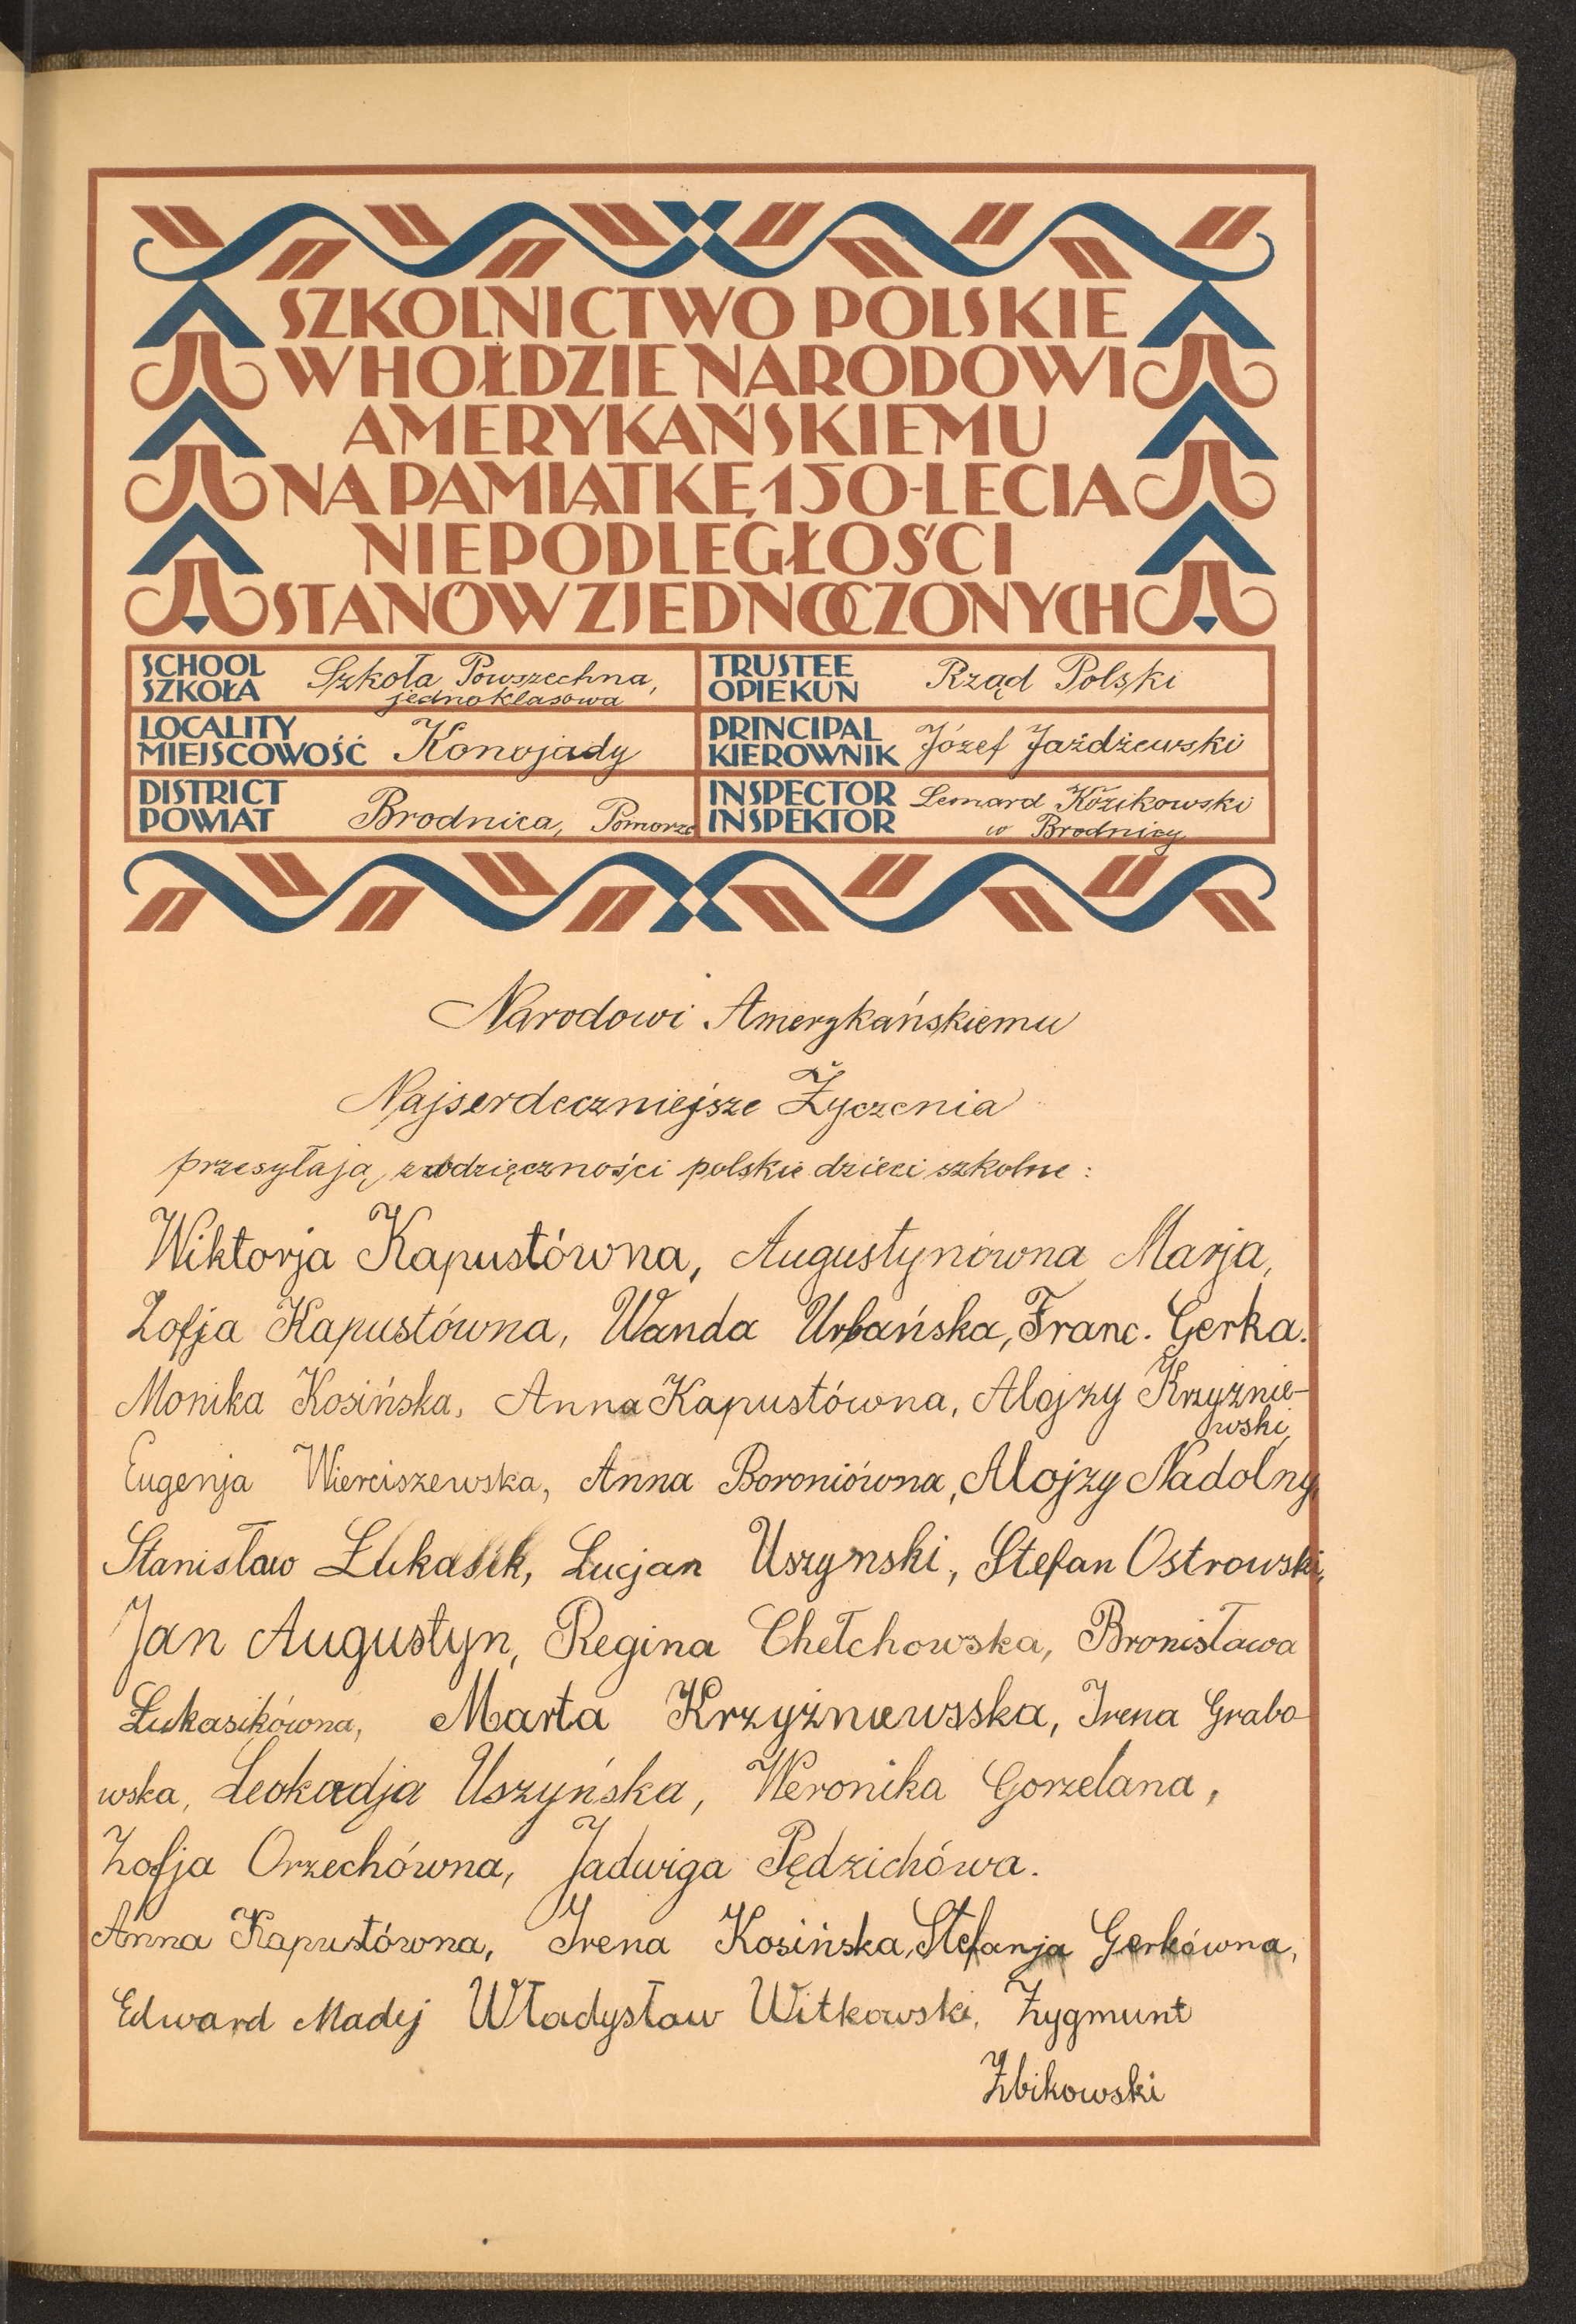 SZKOLNICTWO POLSKIE
W HOŁDZIE NARODOWI
AMERYKAŃSKIEMU
NA PAMIĄTKĘ 150-LECIA
NIEPODLEGŁOŚCI
STANÓW ZJEDNOCZONYCH
SCHOOL
SZKOŁA
Szkoła Powszechna,
jednoklasowa
TRUSTEE
OPIEKUN
Rząd Polski
LOCALITY
MIEJSCOWOŚĆ
Konojady
PRINCIPAL
KIEROWNIK
Józef Jażdżewski
DISTRICT
POWIAT
Brodnica, Pomorze
INSPECTOR
INSPEKTOR
Lemard Kozikowski
w Brodnicy
Narodowi Amerykańskiemu
Najserdeczniejsze Życzenia
przesyłają z wdzięczności polskie dzieci szkolne:
Wiktorja Kapustówna, Augustynówna Marja,
Zofja Kapustówna, Wanda Urbańska, Franc. Gerka.
Monika Kosińska, Anna Kapustówna, Alojzy Krzyżnie-
wski,
Eugenja Wierciszewska, Anna Boroniówna, Alojzy Nadolny,
Stanisław Łukasik, Lucjan Uszynski, Stefan Ostrowski,
Jan Augustyn, Regina Chełchowska, Bronisława
Łukasikówna, Marta Krzyżniewsska, Irena Grabo-
wska, Leokadja Uszyńska, Weronika Gorzelana,
Zofja Orzechówna, Jadwiga Pędzichówa.
Anna Kapustówna, Irena Kosińska, Stefanja Gerkówna,
Edward Madej Władysław Witkowski, Zygmunt
Zbikowski